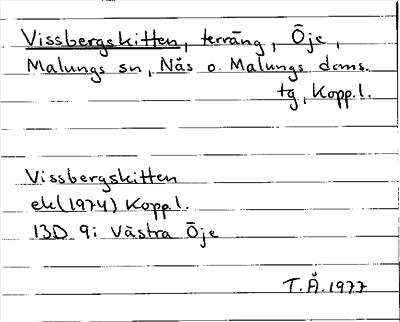 Vissbergskitten, terräng, Öje,
Malungs sn, Nås o. Malungs doms.
tg, Kopp.l.
Vissbergskitten
ek(1974) Kopp.l.
13D 9i Västra Öje
T.Å.1977